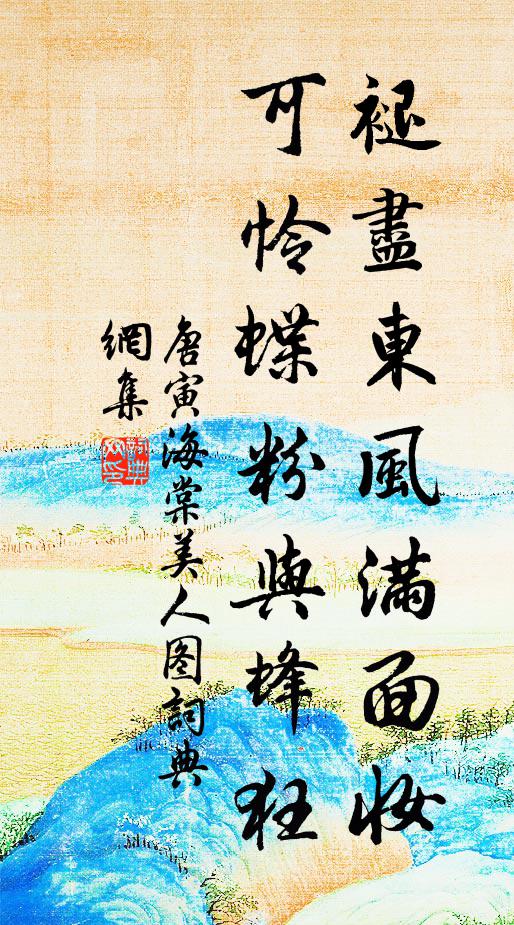 褪盡東風滿面妝
可憐蝶粉與蜂狂
唐寅海棠美人图詞典
網集